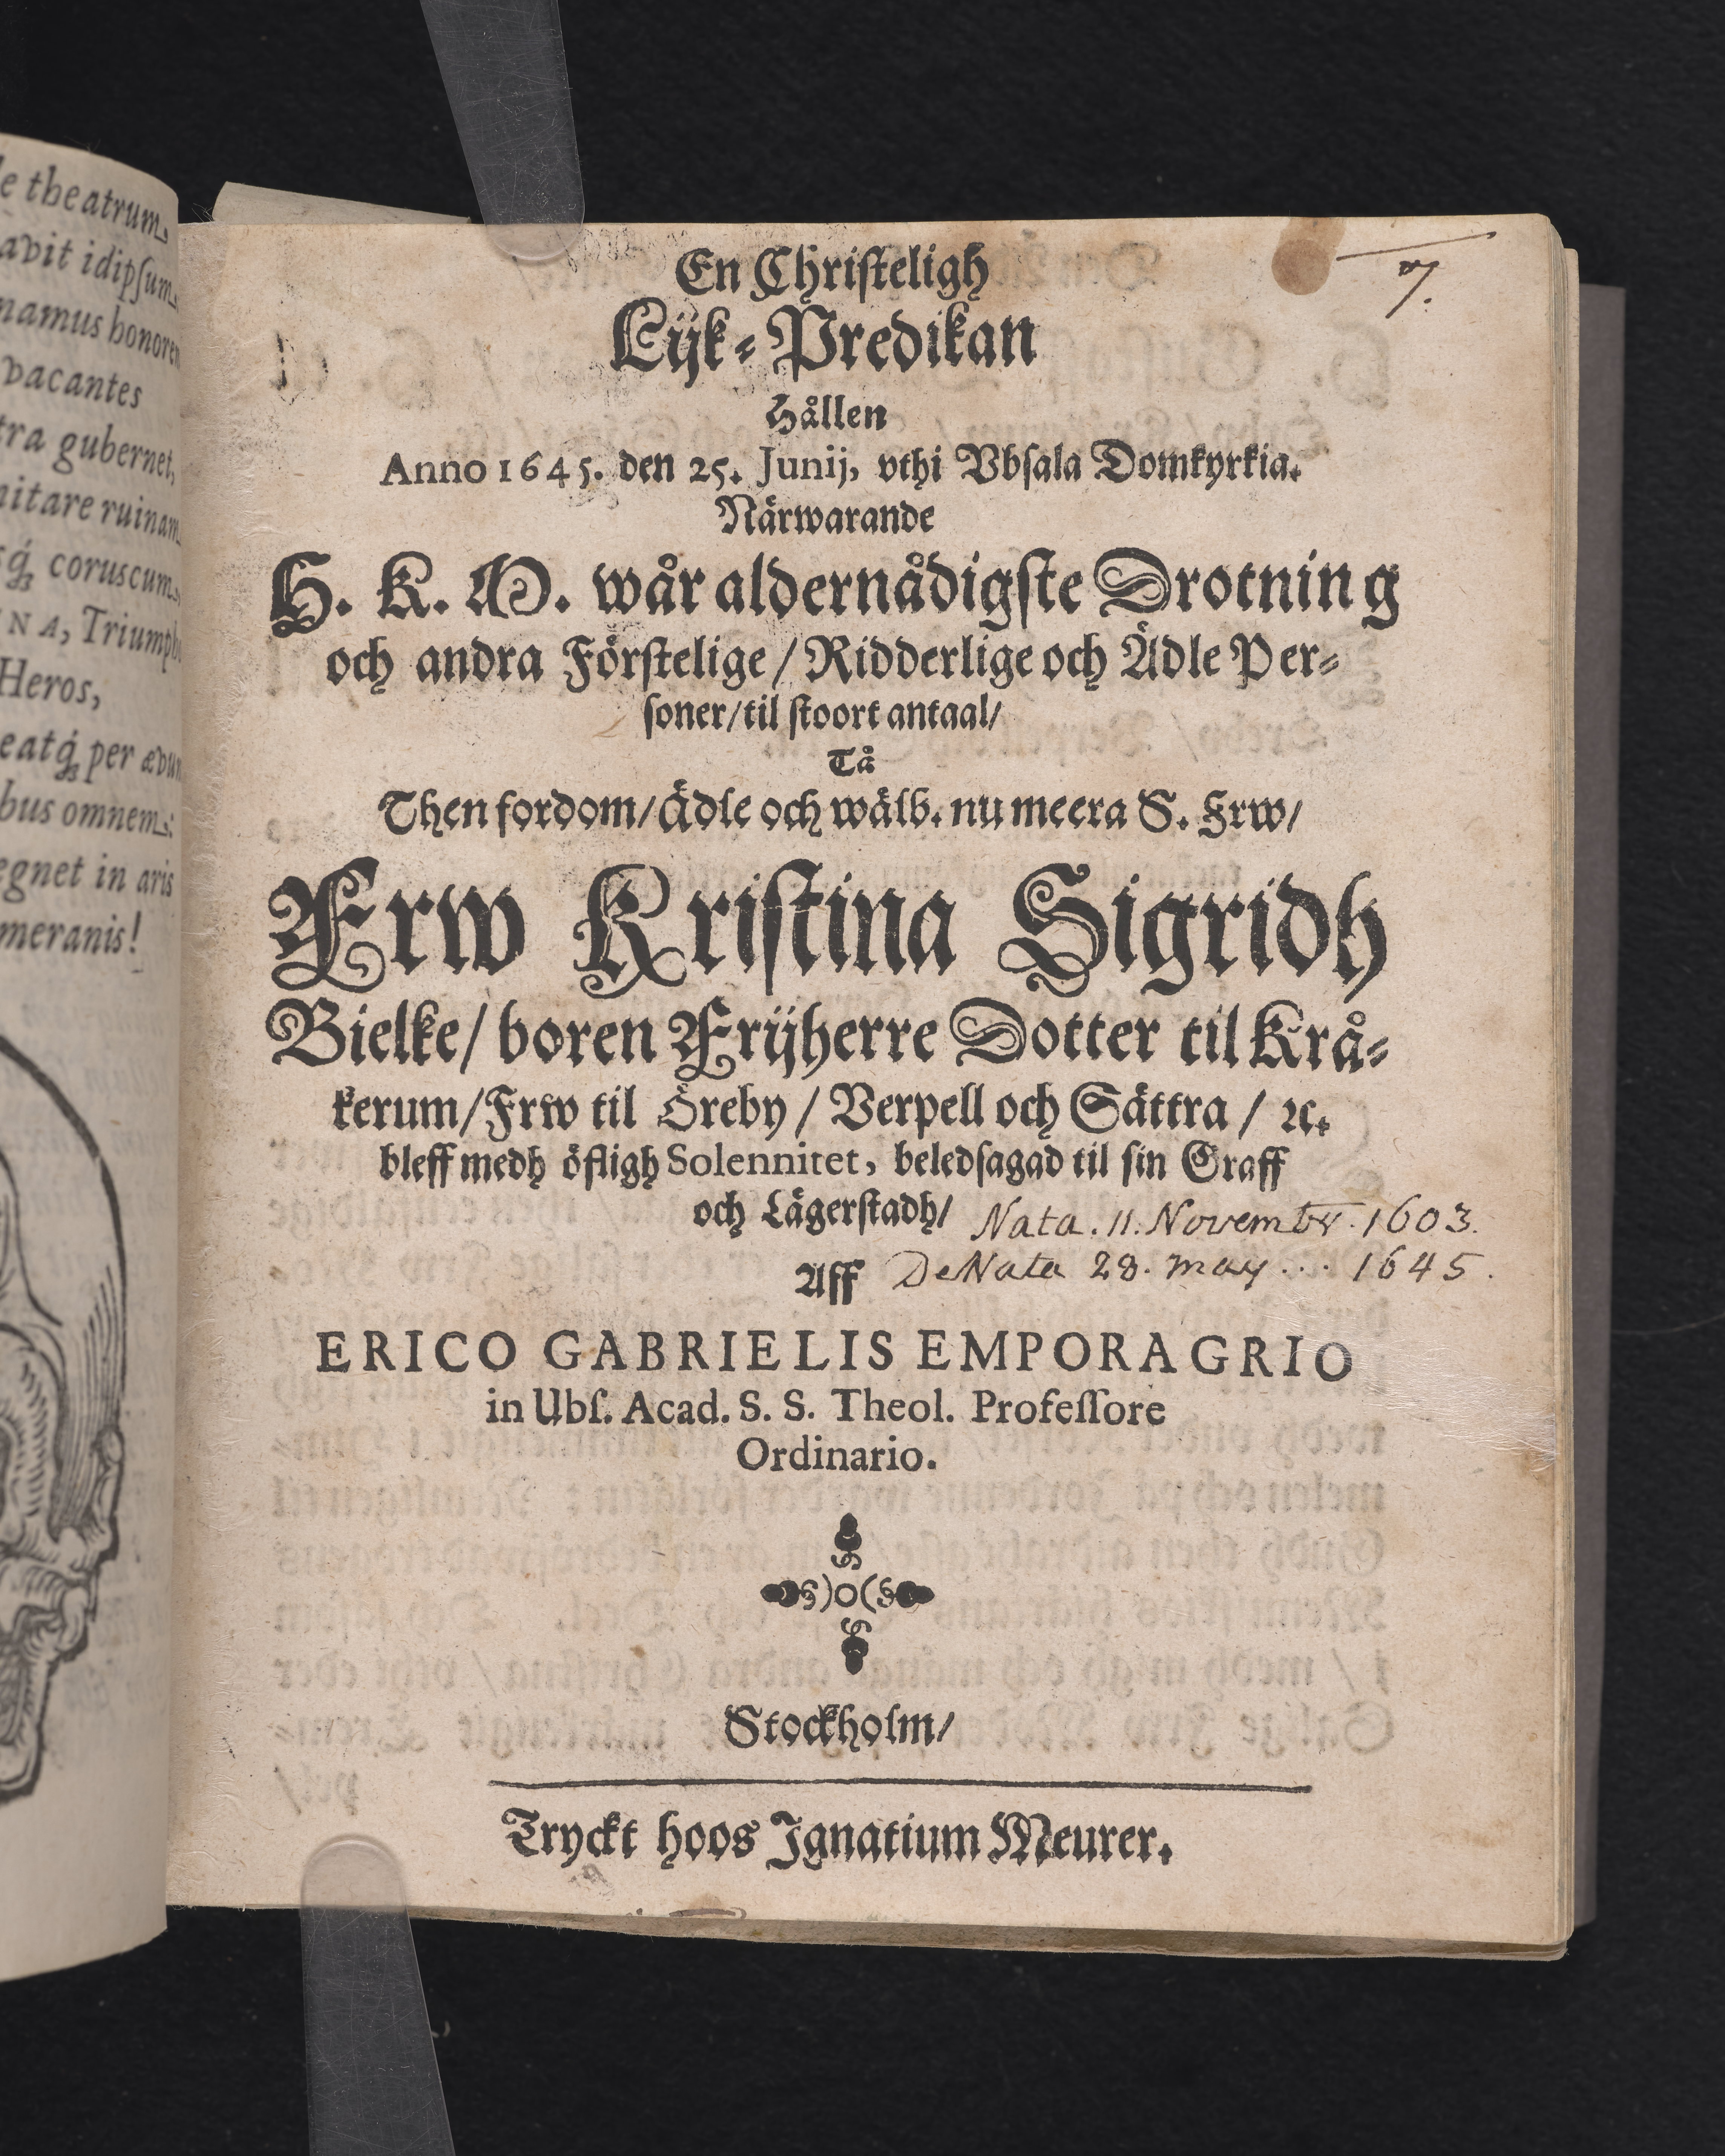 le theatrum
avit idipſum
namus honorem
vacantes
tra gubernet,
nitare ruinam
sq́ꝫ coruscum
INA, Triumph
Heros,
eatq́ꝫ per ævum
bus omnem:
egnet in aris
meranis!
7.
En Chriſteligh
Lijk-Predikan
Hållen
Anno 1645. den 25. Junij, vthi Vbſala Domkyrkia.
Närwarande
H. K. M. wår aldernådigſte Drotning
och andra Förſtelige / Ridderlige och Ädle Per-
ſoner/ til ſtoort antaal/
Tå
Then fordom/ Ädle och wälb. nu meera S. Frw/
Frw Kriſtina Sigridh
Bielke/ boren Frijherre Dotter til Krå-
kerum/ Frw til Öreby / Verpell och Sättra / ꝛc.
bleff medh öfligh Solennitet, beledſagad til ſin Graff
och Lägerſtadh/
Nata. 11. Novembr. 1603.
Aff
DeNata 28. may ... 1645.
ERICO GABRIELIS EMPORAGRIO
in Ubſ. Acad. S. S. Theol. Profeſſore
Ordinario.
)o(
Stockholm/
Tryckt hoos Ignatium Meurer.